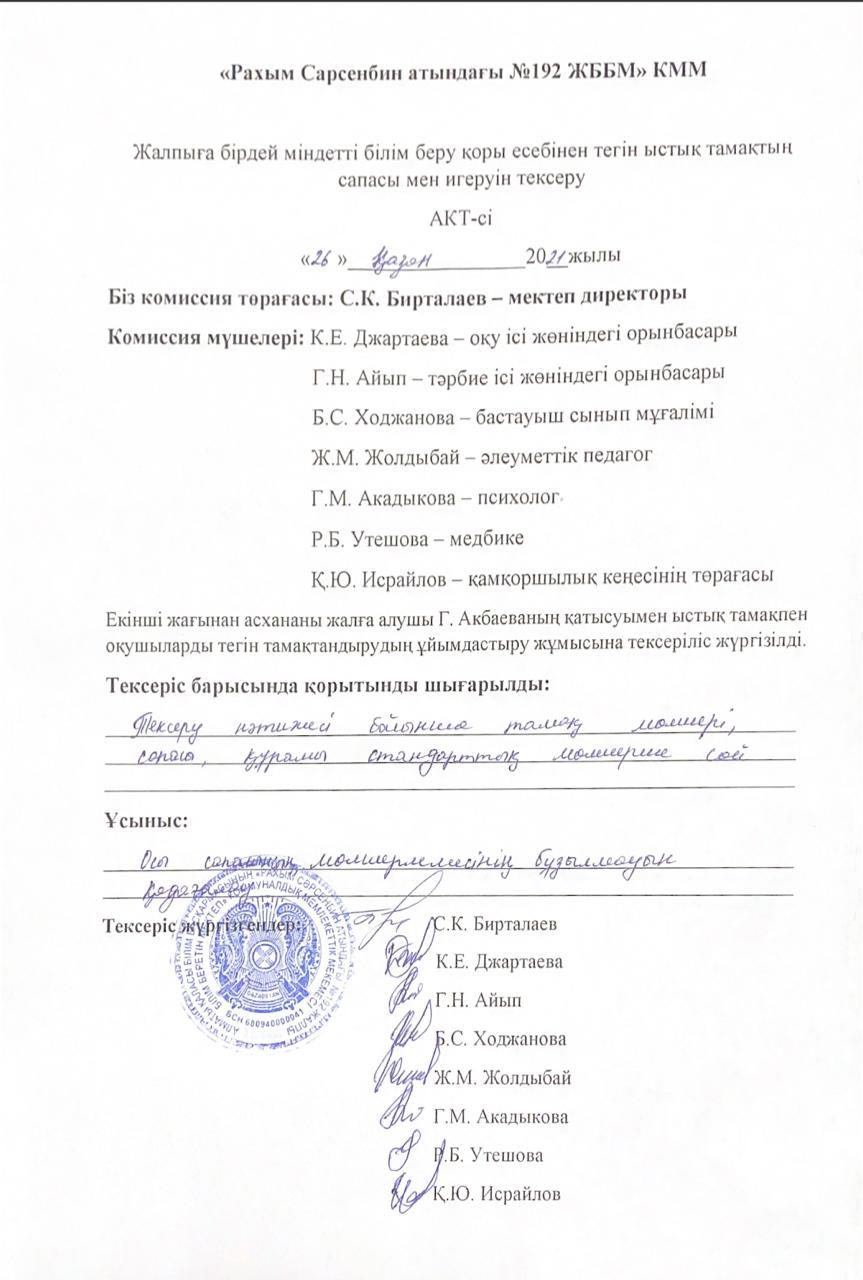 «Рахым Сарсенбин атындағы №192 ЖББМ» КММ
Жалпыға бірдей міндетті білім беру қоры есебінен тегін ыстық тамақтың
сапасы мен игеруін тексеру
АКТ-сі
«26 » Қазан 2021 жылы
Біз комиссия төрағасы: С.К. Бирталаев – мектеп директоры
Комиссия мүшелері: К.Е. Джартаева – оқу ісі жөніндегі орынбасары
Г.Н. Айып – тәрбие ісі жөніндегі орынбасары
Б.С. Ходжанова – бастауыш сынып мұғалімі
Ж.М. Жолдыбай – әлеуметтік педагог
Г.М. Акадыкова – психолог
Р.Б. Утешова – медбике
Қ.Ю. Исрайлов – қамқоршылық кеңесінің төрағасы
Екінші жағынан асхананы жалға алушы Г. Акбаеваның қатысуымен ыстық тамақпен
оқушыларды тегін тамақтандырудың ұйымдастыру жұмысына тексеріліс жүргізілді.
Тексеріс барысында қорытынды шығарылды:
Тексеру нәтижесі бойынша тамақ мөлшері,
сапасы, құрамы стандарттық мөлшерге сай
Ұсыныс:
Осы сапаның мөлшерлемесінің бұзылмауын
қадағалау
Тексеріс жүргізгендер: С.К. Бирталаев
К.Е. Джартаева
Г.Н. Айып
Б.С. Ходжанова
Ж.М. Жолдыбай
Г.М. Акадыкова
Р.Б. Утешова
Қ.Ю. Исрайлов
АЛМАТЫ ҚАЛАСЫ БІЛІМ БАСҚАРМАСЫНЫҢ «РАХЫМ СӘРСЕНБИН АТЫНДАҒЫ №192 ЖАЛПЫ
БІЛІМ БЕРЕТІН МЕКТЕП» КОММУНАЛДЫҚ МЕМЛЕКЕТТІК МЕКЕМЕСІ
БСН 680940000041